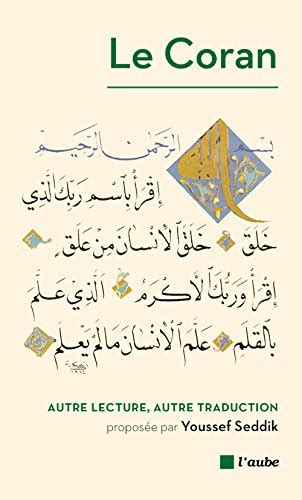 Le Coran
بِسْمِ اللَّهِ الرَّحْمٰنِ الرَّحِيْمِ
اِقْرَأْ بِاسْمِ رَبِّكَ الَّذِي
خَلَقَ خَلَقَ الْاِنْسَانَ مِنْ عَلَقٍ
اِقْرَأْ وَرَبُّكَ الْاَكْرَمُ الَّذِي عَلَّمَ
بِالْقَلَمِ عَلَّمَ الْاِنْسَانَ مَا لَمْ يَعْلَمْ
AUTRE LECTURE, AUTRE TRADUCTION
proposée par Youssef Seddik
l'aube